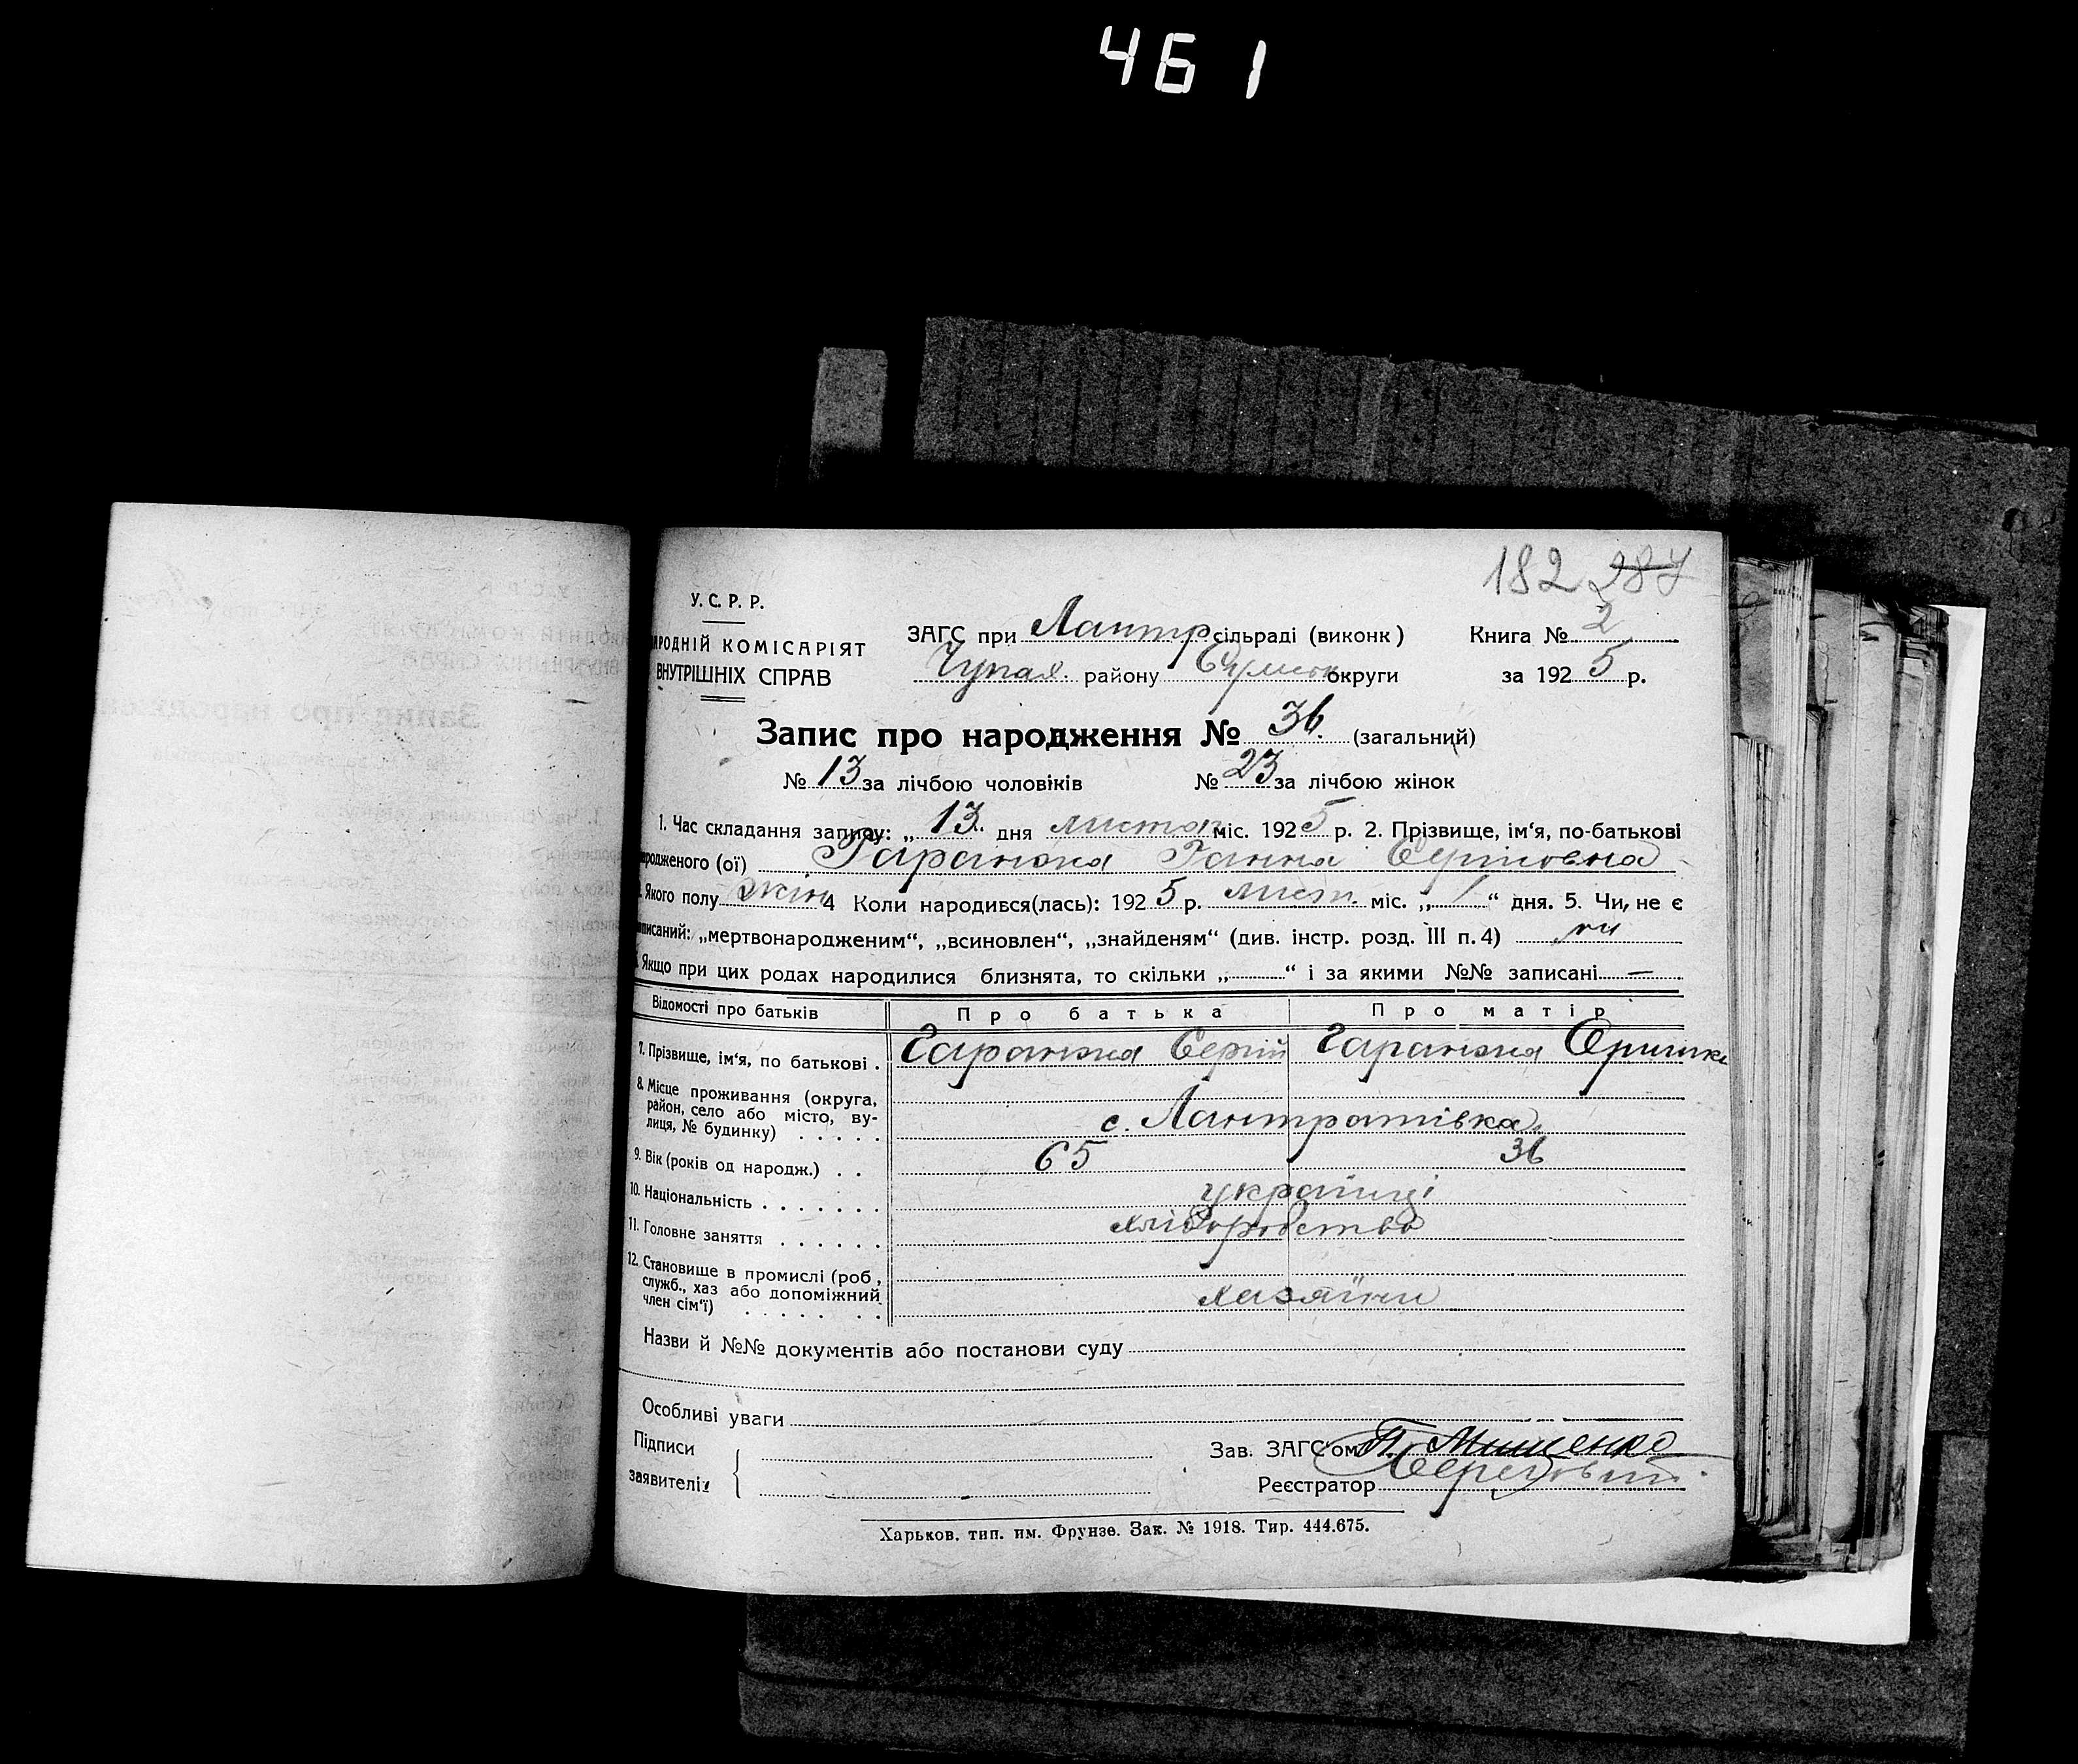 461
182 287
У. С. Р. Р.
НАРОДНІЙ КОМІСАРІЯТ
ВНУТРІШНІХ СПРАВ
ЗАГС при Лантр сільраді (виконк) Книга № 2
Чупах. району Сумськ округи за 1925 р.
Запис про народження № 36. (загальний)
№ 13 за лічбою чоловіків № 23 за лічбою жінок
1. Час складання запису: „13“ дня листоп міс. 1925 р. 2. Прізвище, ім‘я, по-батькові
народженого (ої) Гаранжа Ганна Сергіовна
Якого полу жін 4 Коли народився(лась): 1925 р. лист. міс. „1“ дня. 5. Чи, не є
записаний: „мертвонародженим“, „всиновлен“, „знайденям“ (див. інстр. розд. III п. 4) ні
Якщо при цих родах народилися близнята, то скільки „ “ і за якими №№ записані —
Відомості про батьків Про батька Про матір
7. Прізвище, ім‘я, по батькові . Гаранжа Сергій Гаранжа Оришка
8. Місце проживання (округа,
район, село або місто, ву-
лиця, № будинку) . . . . . с. Лантратівка
9. Вік (років од народж.) . . 65 36
10. Національність . . . . . . . українці
11. Головне заняття . . . . . . хліборобство
12. Становище в промислі (роб.,
служб., хаз або допоміжний
член сім‘ї) . . . . . . . хазяїни
Назви й №№ документів або постанови суду
Особливі уваги
Підписи
заявителів
Зав. ЗАГС‘ом П. Мищенко
Реєстратор
Харьков, тип. им. Фрунзе. Зак. № 1918. Тир. 444.675.